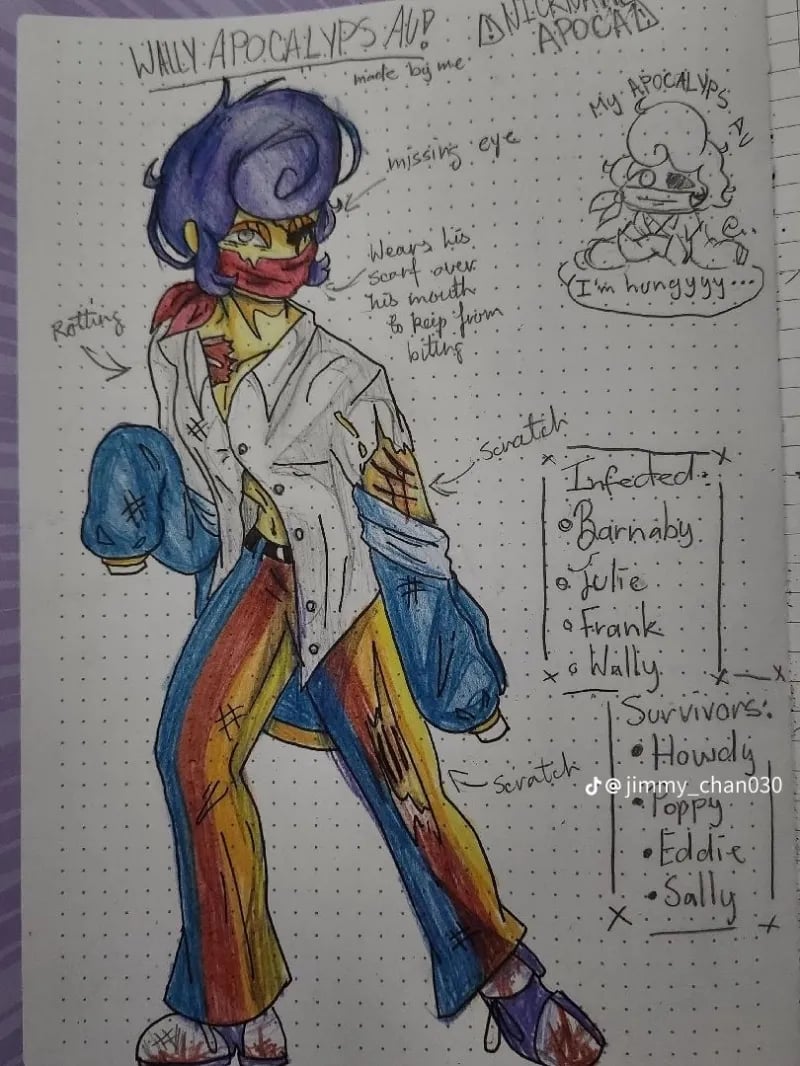 WALLY APOCALYPS AU!
made by me
⚠NICKNAME
APOCA⚠
My APOCALYPS AU
missing eye
Wears his
scarf over
his mouth
to keip from
biting
I'm hungyyy...
Rotting
scratch
Infected:
Barnaby
Julie
Frank
Wally
Survivors:
Howdy
Poppy
Eddie
Sally
scratch
@jimmy_chan030